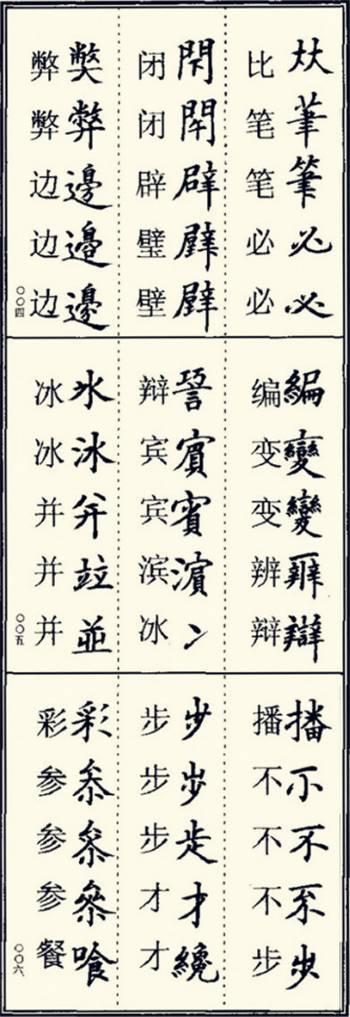 夶茟筆必必
比笔笔必必
閇辟璧壁
闭闭辟璧壁
獘弊邊邉邊
弊弊边边边
〇〇四
編變變辯
编变变辨辩
賓賔濵冫
辩宾宾滨冰
氷冰并竝並
冰冰并并并
〇〇五
播不步
播不不不步
步步才纔
步步步才才
彩叅喰
彩参参参餐
〇〇六